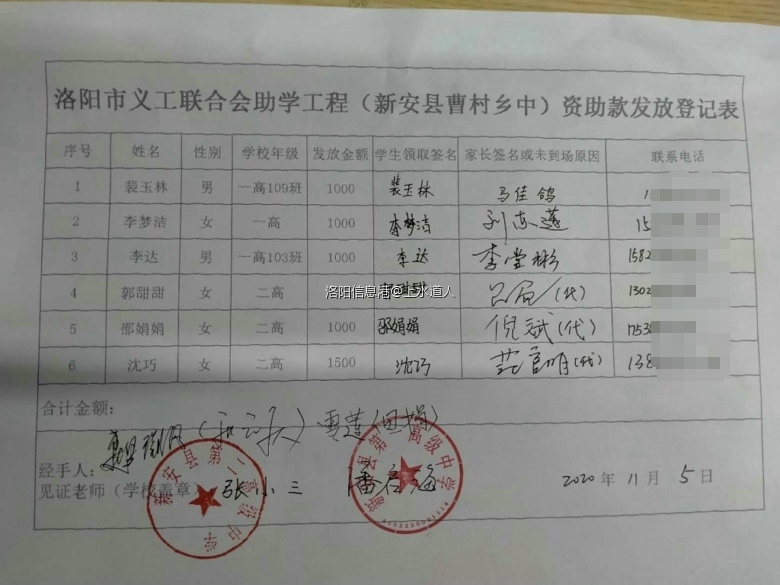 洛阳市义工联合会助学工程（新安县曹村乡中）资助款发放登记表
序号 姓名 性别 学校年级 发放金额 学生领取签名 家长签名或未到场原因 联系电话
1 裴玉林 男 一高109班 1000 裴玉林 马佳鸽 1
2 李梦洁 女 一高 1000 李梦洁 15
3 李达 男 一高103班 1000 李达 李堂彬 1582
4 郭甜甜 女 二高 1000 (代) 1302
洛阳信息港@上水道人
5 邵娟娟 女 二高 1000 邵娟娟 倪斌(代) 1753
6 沈巧 女 二高 1500 沈巧 范官明(代) 138
合计金额：
经手人：
见证老师（学校盖章） 张小三
2020 年 11 月 5 日
新安县第二高级中学
新安县第一高级中学